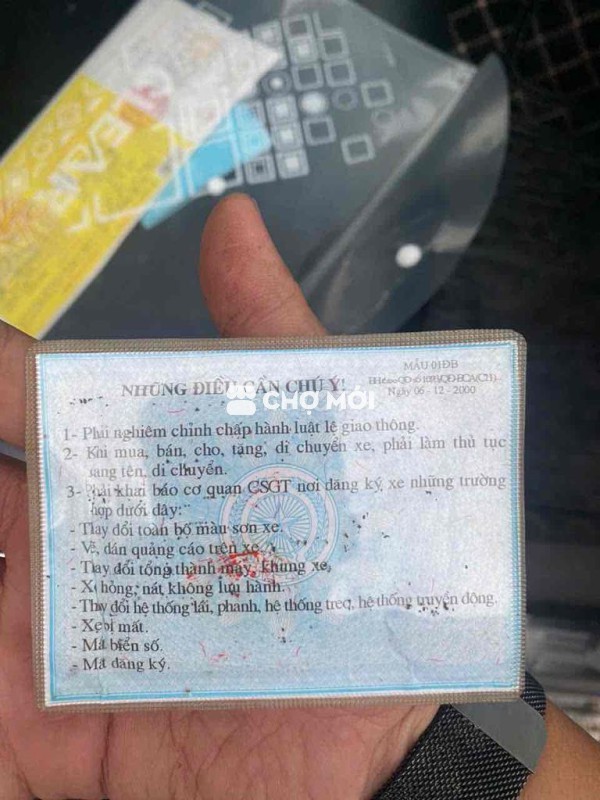 CLEAR
MẪU 01ĐB
NHỮNG ĐIỀU CẦN CHÚ Ý!
Ngày 06 - 12 - 2000
CHỢ MỚI
1- Phải nghiêm chỉnh chấp hành luật lệ giao thông.
2- Khi mua, bán, cho, tặng, di chuyển xe, phải làm thủ tục
sang tên, di chuyển.
3- Phải khai báo cơ quan CSGT nơi đăng ký xe những trường
hợp dưới đây:
- Thay đổi toàn bộ màu sơn xe.
- Vẽ, dán quảng cáo trên xe.
- Thay đổi tổng thành máy, khung xe.
- Xe hỏng, nát không lưu hành.
- Thay đổi hệ thống lái, phanh, hệ thống treo, hệ thống truyền động.
- Xe bị mất.
- Mất biển số.
- Mất đăng ký.